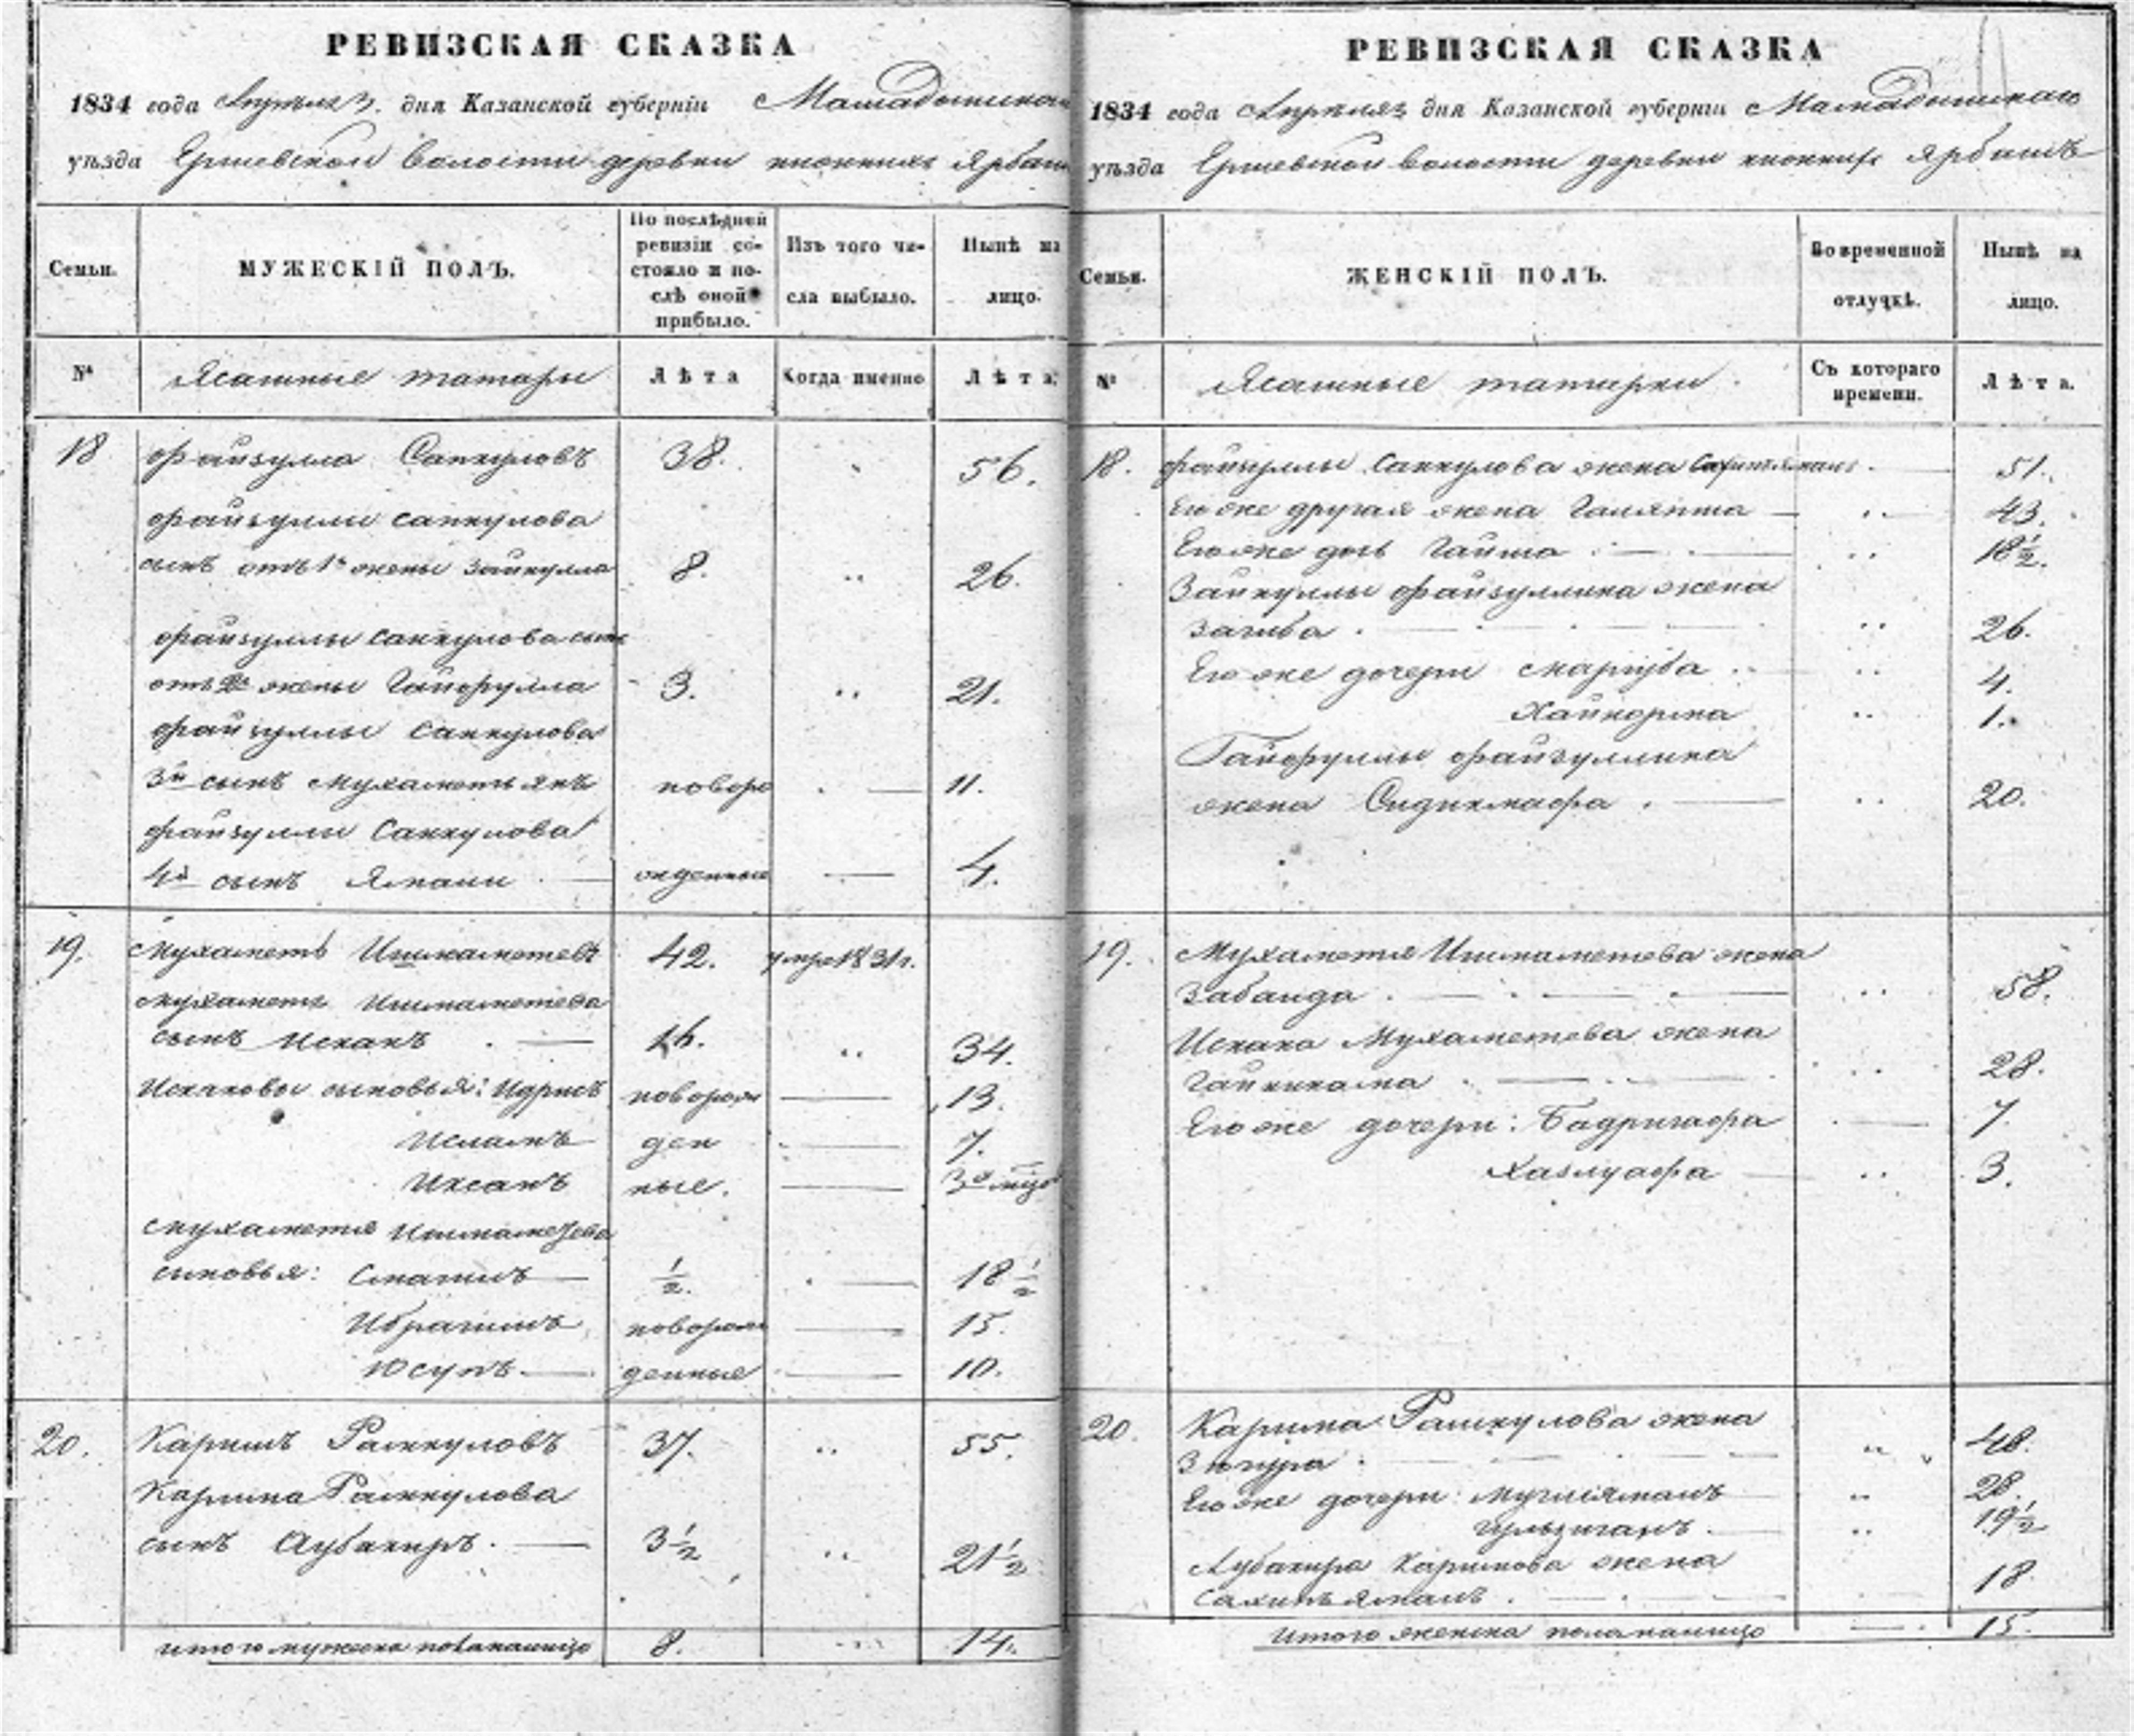 РЕВИЗСКАЯ СКАЗКА
1834 года Апреля 3. дня Казанской губернiи Мамадышскаго
уѣзда Ершевской волости деревни нижнихъ Ярбашъ
Семьи.
МУЖЕСКIЙ ПОЛЪ.
По послѣдней
ревизiи со-
стояло и по-
слѣ оной
прибыло.
Изъ того чи-
сла выбыло.
Нынѣ на
лицо.
№
Ясашные татары
Лѣта
Когда именно
Лѣта.
18 Файзулла Сапкуловъ 38. 56.
Файзуллы Сапкулова
сынъ отъ 1й жены Зайнулла 8. 26.
Файзуллы Сапкулова сынъ
отъ 2й жены Гайфулла 3. 21.
Файзуллы Сапкулова
3й сынъ Мухаметьянъ новоро — 11.
Файзуллы Сапкулова
4й сынъ — жденные — 4.
19. Мухаметъ Ишмаметевъ 42. умре 1831 г.
Мухаметя Ишмаметева
сынъ Исхакъ — 16. 34.
Исхаковы сыновья: Идрисъ новорож — 13.
Исламъ ден — 7.
Ихсанъ ные. —
Мухаметя Ишмаметева
сыновья: Смагилъ — ½. — 18½
Ибрагимъ новорож — 15.
Юсупъ — денные — 10.
20. Каримъ Рамкуловъ 37. 55.
Карима Рамкулова
сынъ Аубакиръ. — 3½ 21½
итого мужеска пола налицо 8. 14.
РЕВИЗСКАЯ СКАЗКА
1834 года Апреля 3 дня Казанской губернiи Мамадышскаго
уѣзда Ершевской волости деревни нижнихъ Ярбашъ
Семьи.
ЖЕНСКIЙ ПОЛЪ.
Во временной
отлучкѣ.
Нынѣ на
лицо.
№
Ясашные татарки
Съ котораго
времени.
Лѣта.
18. Файзуллы Сапкулова жена — 51.
Его же другая жена — 43.
Его же дочь Гайша — 18½.
Зайнуллы Файзуллина жена
Загиба — 26.
Его же дочери Магруба 4.
1.
Гайфуллы Файзуллина
жена — 20.
19. Мухаметя Ишмаметева жена
Забаида — 58.
Исхака Мухаметева жена
Гайникама — 28.
Его же дочери: — 7.
— 3.
20. Карима Рамкулова жена
Зюгура — 48.
Его же дочери: 28.
— 19½
Аубакира Каримова жена
— 18
итого женска пола налицо — 15.